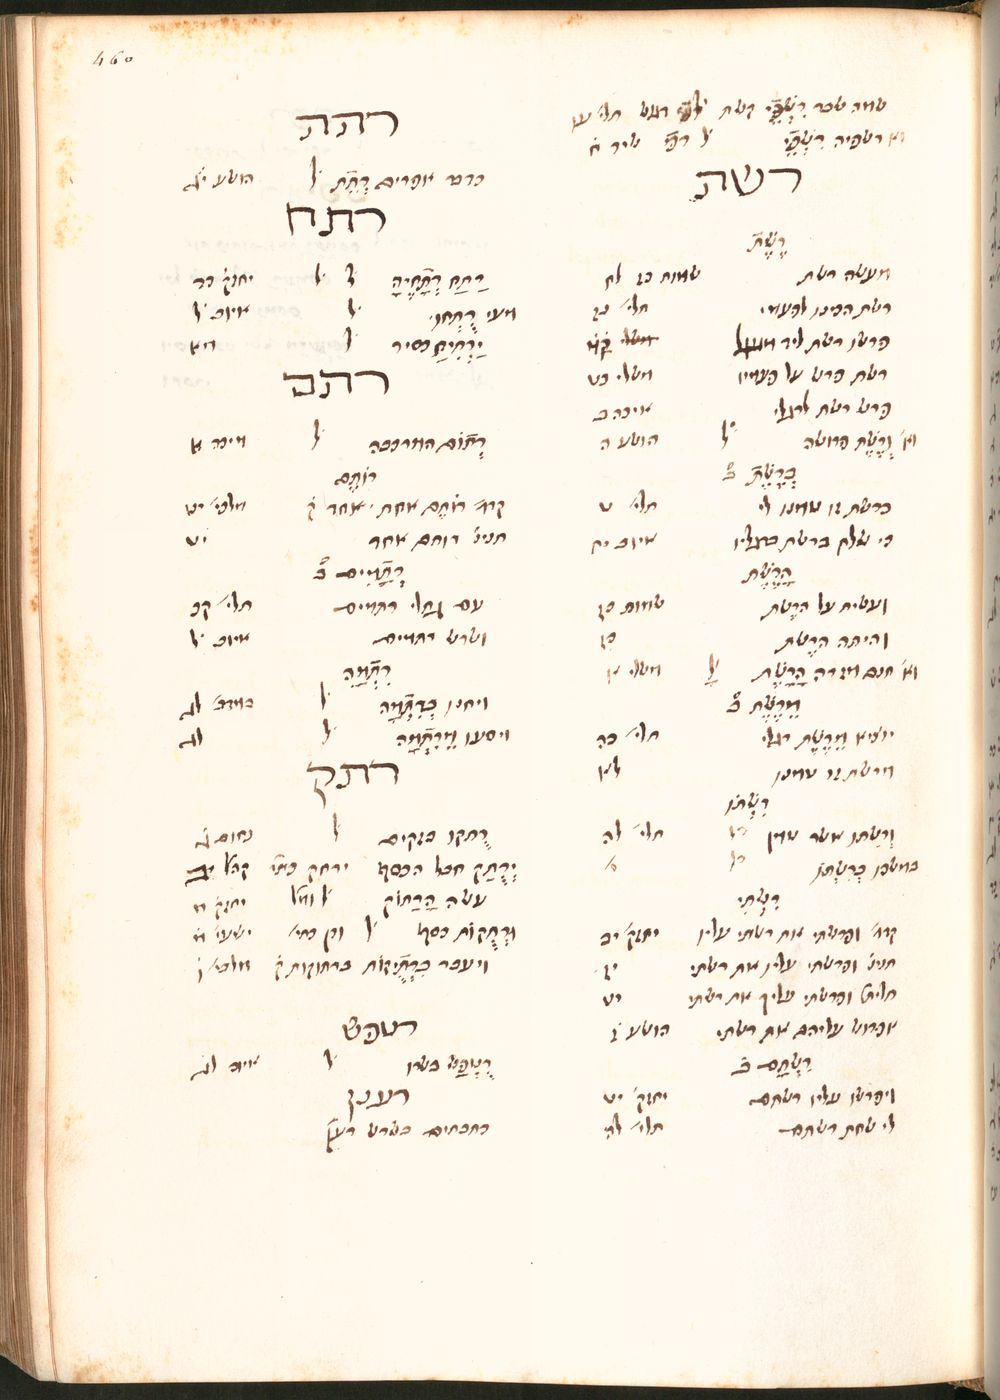 460
שמה שבר רִשְׁפֵי קשת תלי׳ עו
וא׳ רשפיה רִשְׁפֵּי ל׳ רפי שיר ח
רשת
רֶשֶׁת
מעשה רשת שמות כז לח
רשת הכינו לפעמי תלי׳ נז
פרשו רשת ליד מעגל
רשת פרש על פעמיו משלי כט
פרש רשת לרגלי איכה ב
וא׳ וְרֶשֶׁת פרושה ל׳ הושע ה
בְּרֶשֶׁת ב׳
ברשת זו טמנו לי תלי׳ ט
כי שלח ברשת ברגליו איוב יח
הָרֶשֶׁת
ועשית על הרשת שמות כז
והיתה הרשת כז
וא׳ חנם מזרה הָרָשֶׁת ל׳ משלי א
מֵרֶשֶׁת ב׳
יוציא מֵרֶשֶׁת רגלי תלי׳ כה
מרשת זו טמנו לא
רִשְׁתּוֹ
וְרִשתו אשר טמן תלי׳ לה
במשכו בְרִשְׁתּוֹ
רִשְׁתִּי
קדמ׳ ופרשתי את רשתי עליו יחזק׳ יב
תנינ׳ ופרשתי עליו את רשתי יז
תלית׳ ופרשתי עליך את רשתי
אפרוש עליהם את רשתי הושע ז
רִשְׁתָּם ב׳
ויפרשו עליו רשתם יחזק׳ יט
לי שחת רשתם תלי׳ לה
רתת
כדבר אפרים רְתֵת ל׳ הושע יג
רתח
רַתַּח רְתָחֶיהָ ל׳ ל׳ יחזק׳ כד
מעי רֻתְּחוּ ל׳ איוב ל׳
יַרְתִּיחַ כסיר ל׳ מא
רתם
רְתוֹם המרכבה ל׳ מיכה א
רוֹתֶם
קדמ׳ רוֹתֶם אחת׳ אחד ק׳ מלכי׳ יט
תנינ׳ רותם אחד יט
רְתָמִים ב׳
עם גחלי רתמים תלי׳ קכ
ושרש רתמים איוב ל׳
רִתְמָה
ויחנו בְּרִתְמָה ל׳ במדב׳ לג
ויסעו מֵרִתְמָה ל׳ לג
רתק
רֻתְּקו בזקים ל׳ נחום ג׳
יֵרָתֵק חבל הכסף ירחק כתי׳ קהל׳ יב
עשה הַרַתּוֹק ל׳ ומל׳ יחזק׳ ז
וּרְתֻקוֹת כסף ל׳ וק׳ כתי׳ ישעי׳ מ
ויעבר בְּרַתִּיקוֹת ברתוקות ק׳ מלכי׳ ו׳
רטפש
רֻטֲפַשׁ בשרו ל׳ איוב לג
רענן
כתבתים בשרש רען